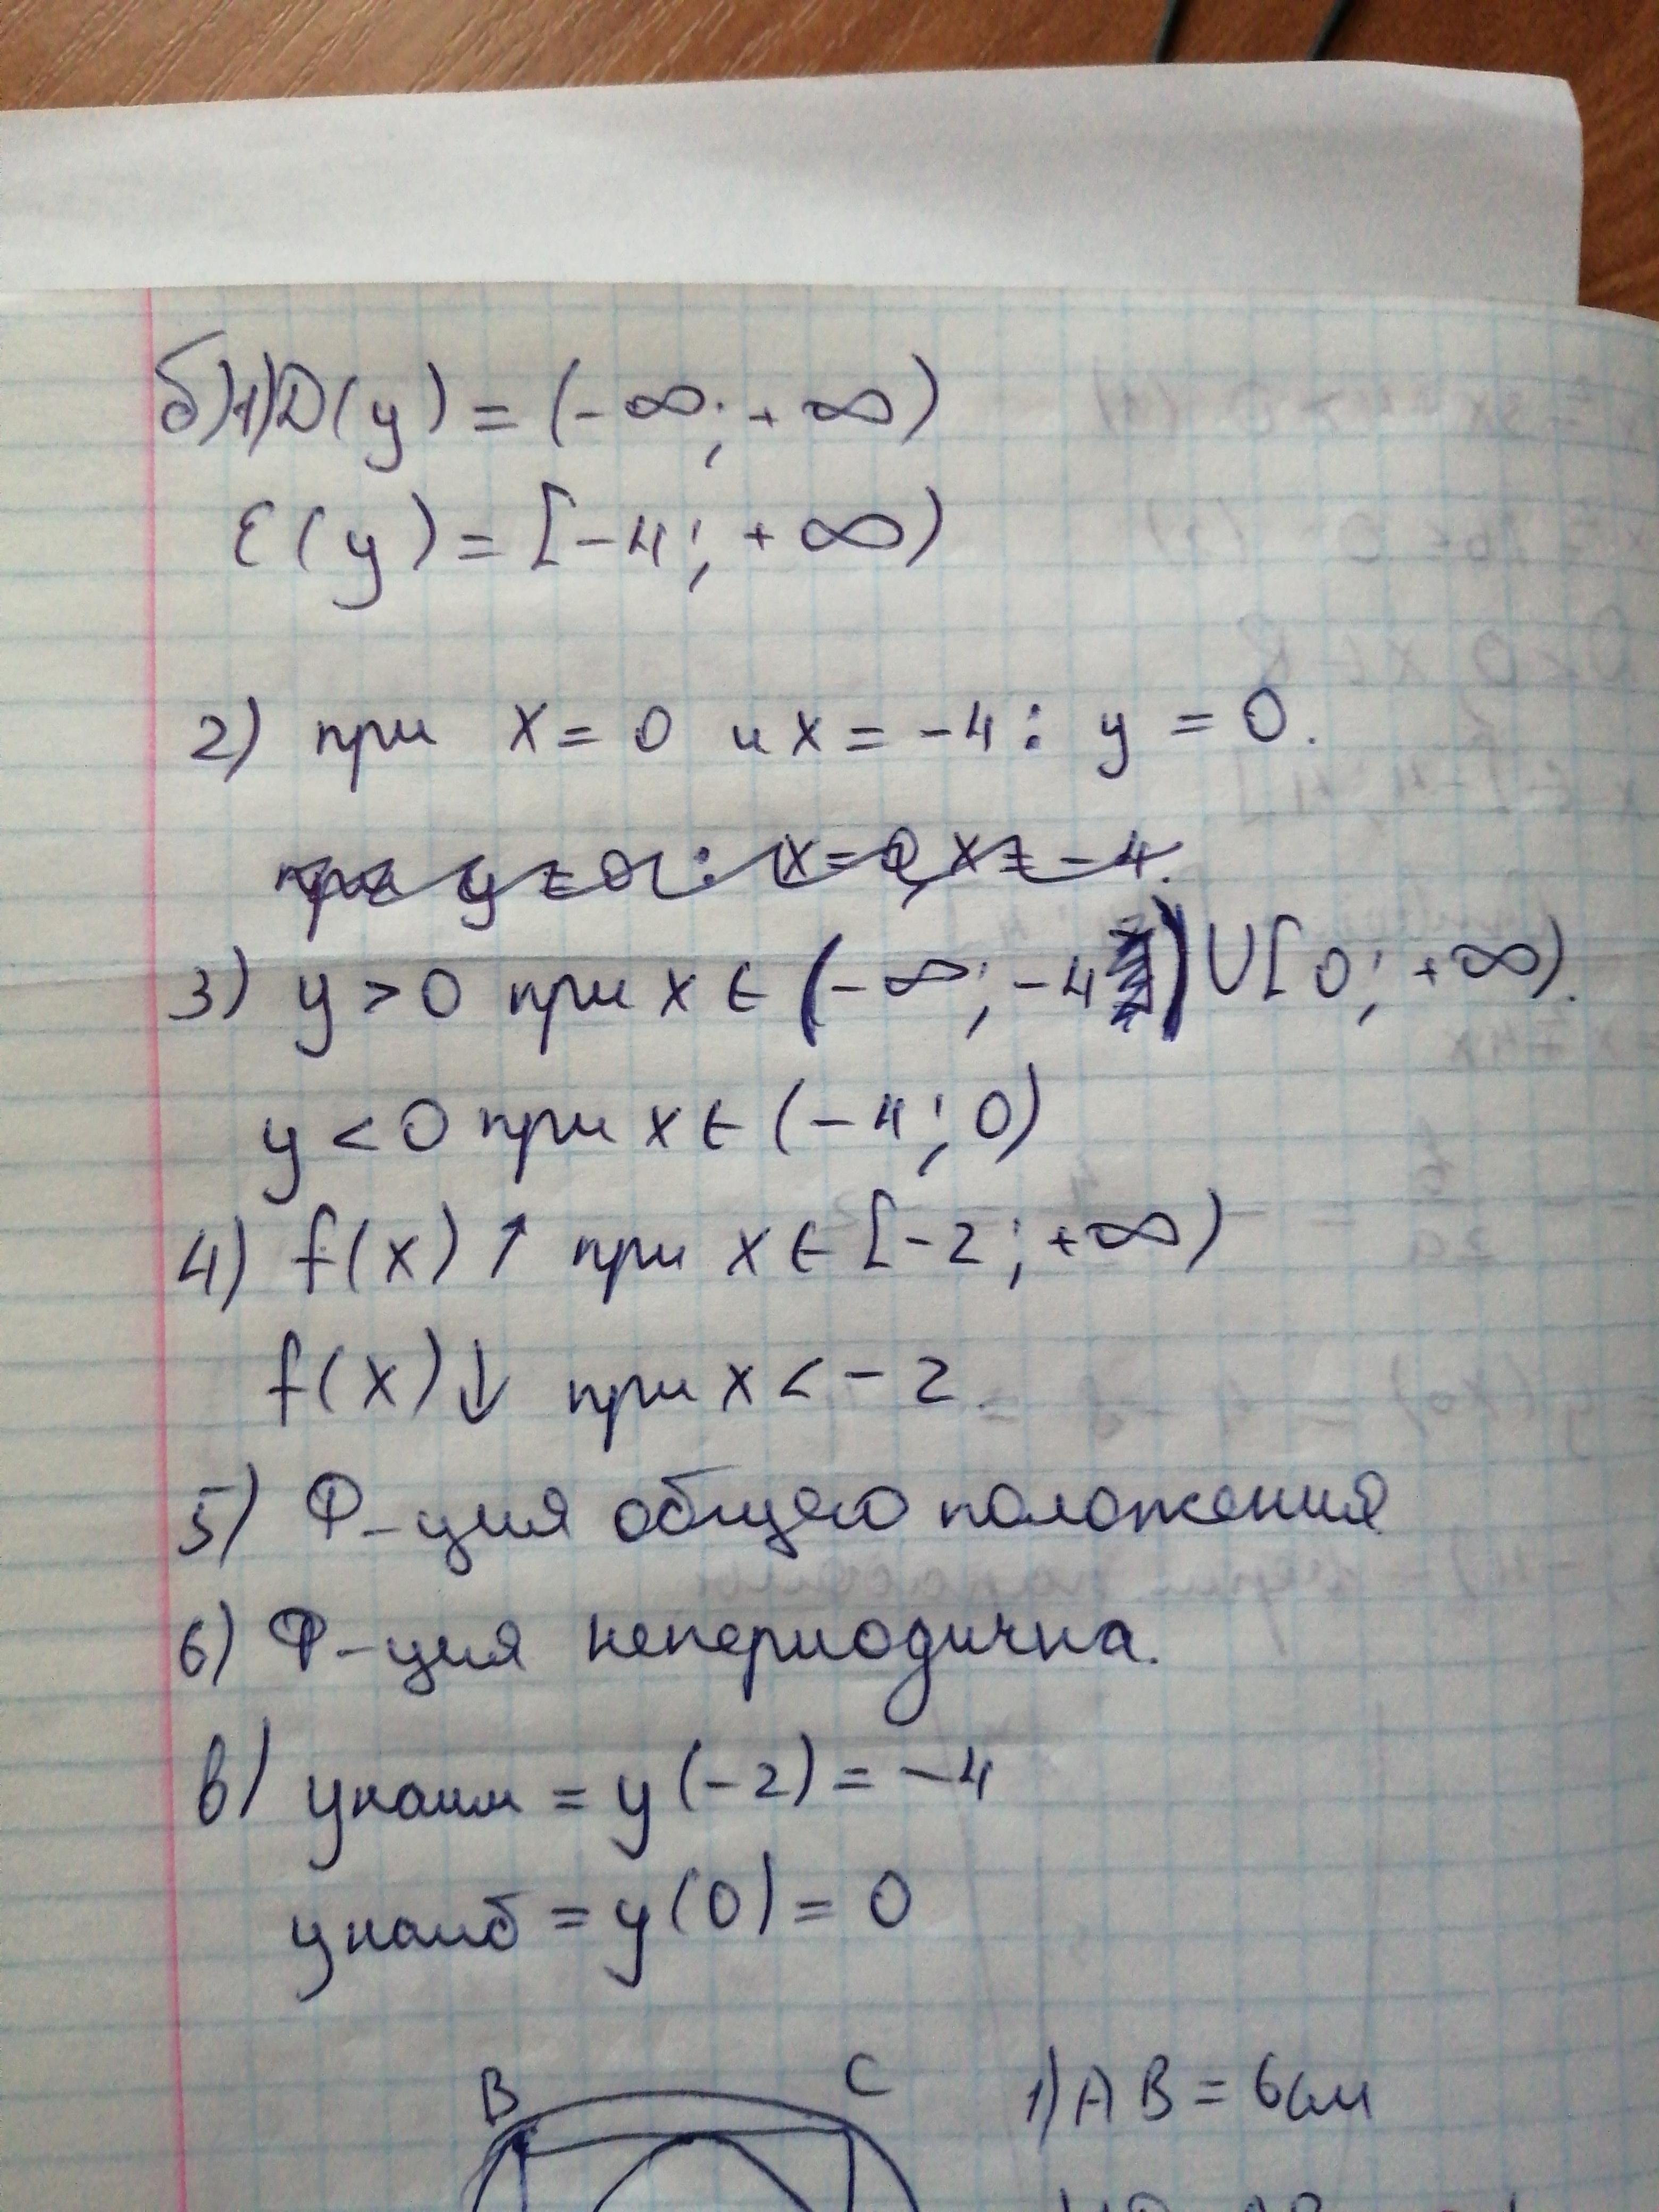 б)1) D(y) = (-∞; +∞)
E(y) = [-4; +∞)
2) при x = 0 и x = -4: y = 0.
при y = 0: x = 0, x = -4.
3) y > 0 при x ∈ (-∞; -4) U [0; +∞).
y < 0 при x ∈ (-4; 0)
4) f(x) ↑ при x ∈ [-2; +∞)
f(x) ↓ при x < -2.
5) Ф-ция общего положения
6) Ф-ция непериодична.
в) yнаим = y(-2) = -4
yнаиб = y(0) = 0
B C 1) AB = 6см